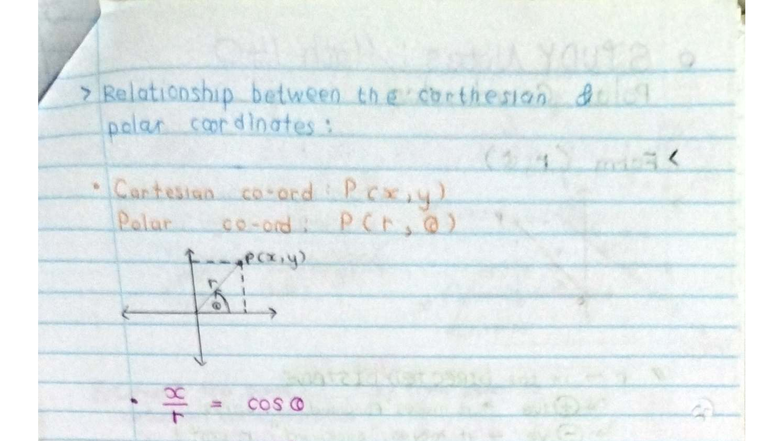 > Relationship between the carthesian &
polar coordinates:
• Cartesian co-ord: P(x,y)
Polar co-ord: P(r, θ)
P(x,y)
r
θ
• x/r = cos θ